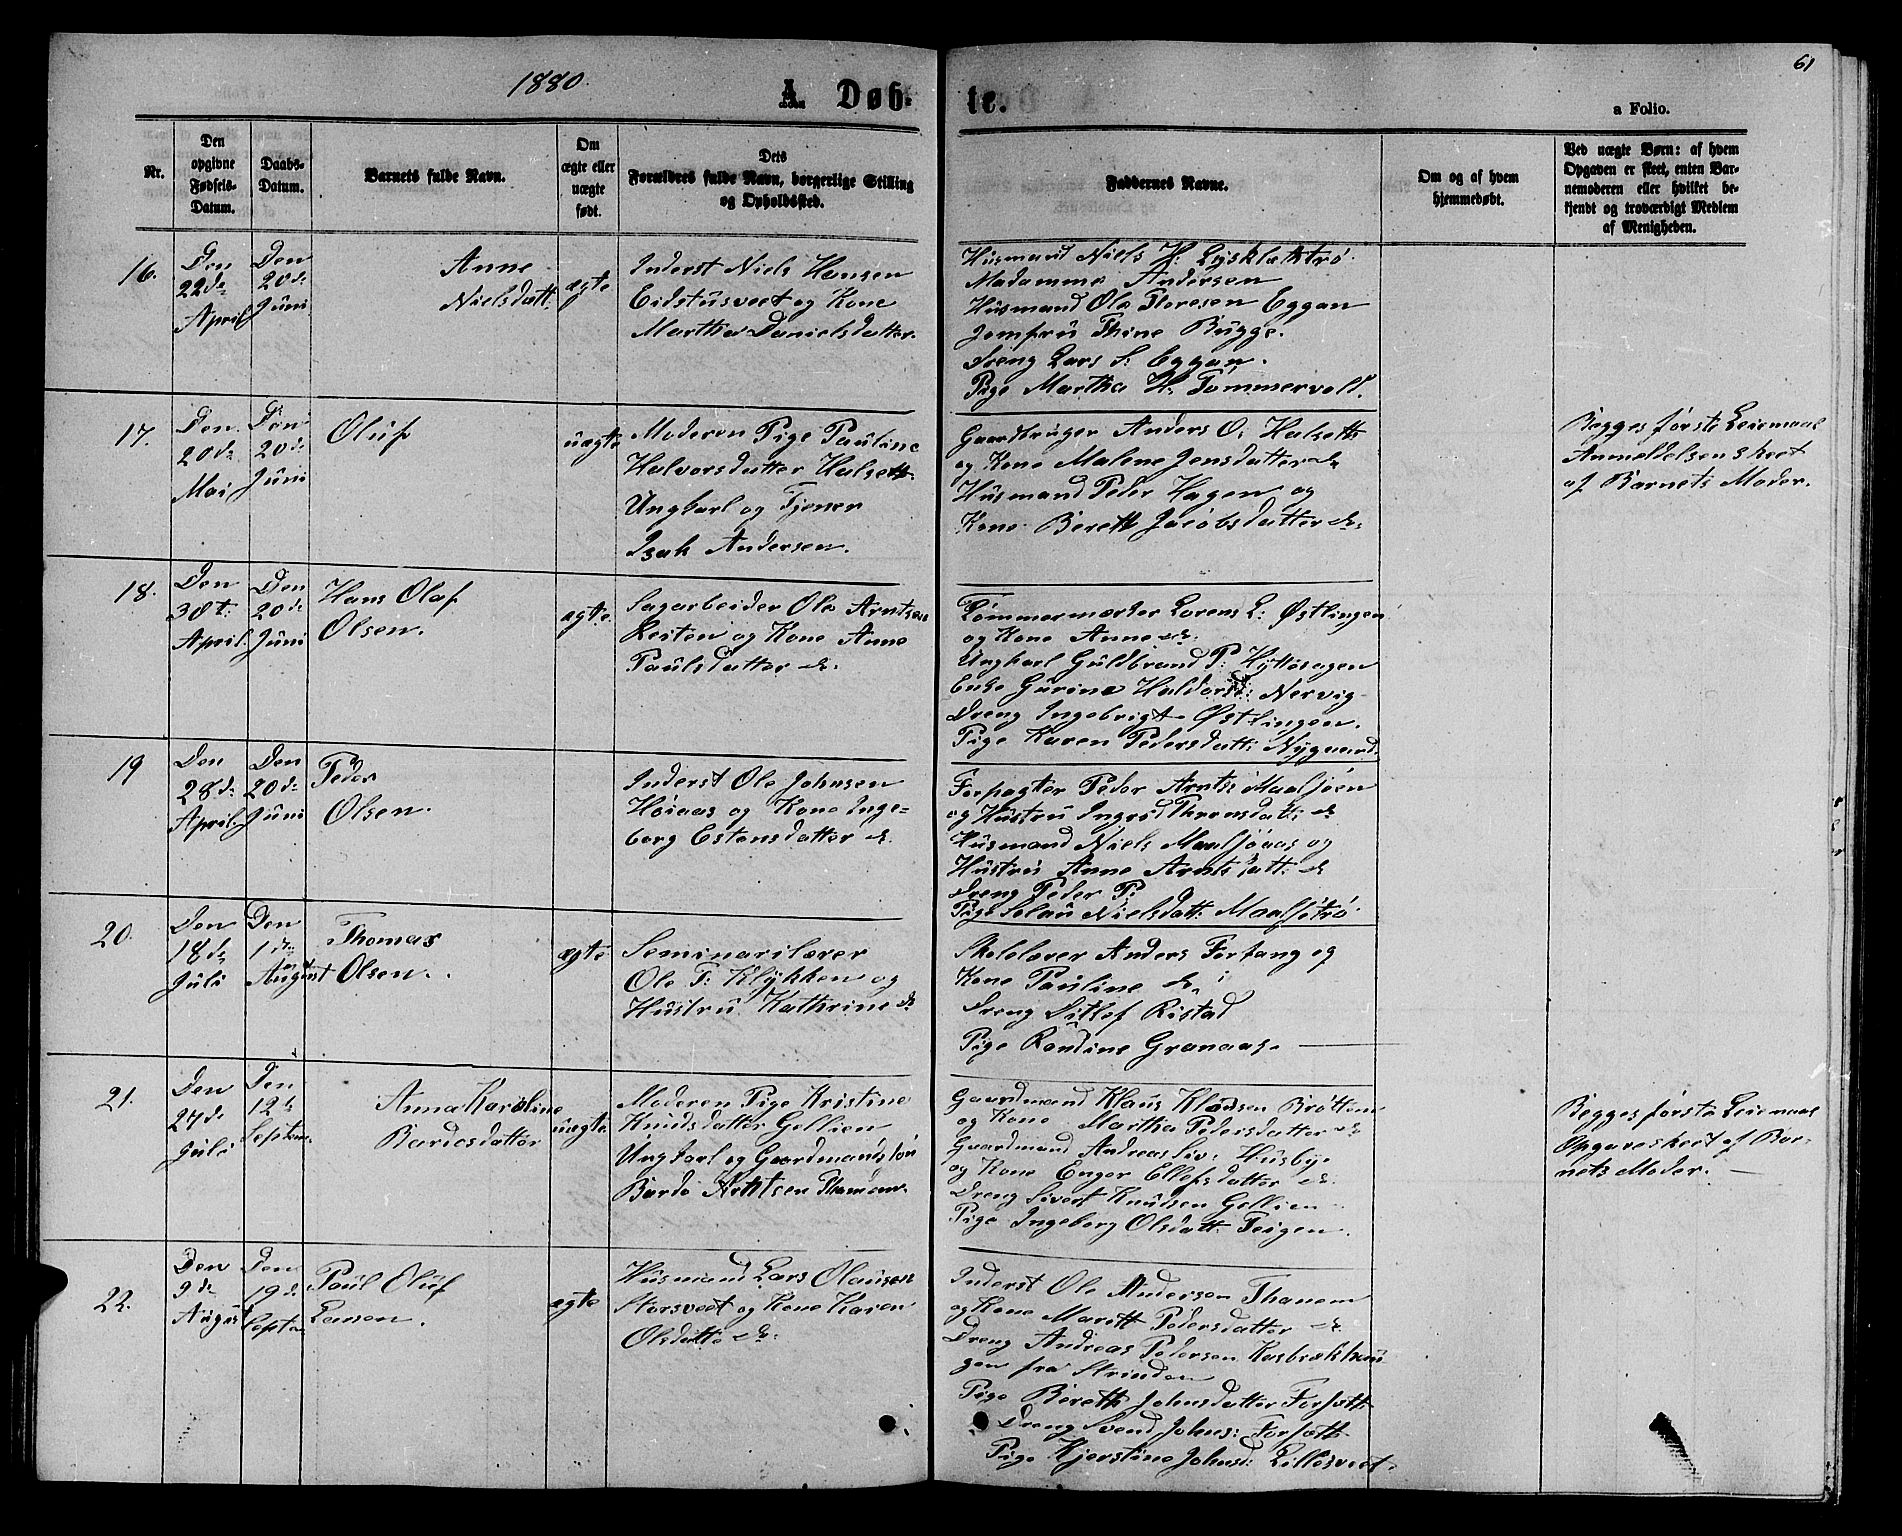 1880.
A. Døb-
te.
61
a Folio.
Nr.
Den
opgivne
Fødsels-
Datum.
Daabs-
Datum.
Barnets fulde Navn.
Om
ægte eller
uægte
født.
Dets
Forældres fulde Navn, borgerlige Stilling
og Opholdssted.
Faddernes Navne.
Om og af hvem
hjemmedøbt.
Ved uægte Børn: af hvem
Opgaven er skeet, enten Bar-
nemoderen eller hvilket be-
kjendt og troværdigt Medlem
af Menigheden.
16.
Den
22de
April
Den
20de
Juni
Anne
Nielsdatt.
ægte
Inderst Niels Hansen
Eidstusveet og Kone
Martha Danielsdatter.
Husmand Niels H:
Madamme Andersen
Husmand Ole Thoresen Eggan
Jomfru Thine Bugge.
Dreng Lars S: Eggan.
Pige Martha H: Tømmervold.
17.
Den
20de
Mai
Den
20de
Juni
Oluf
uægte
Moderen Pige Pauline
Halvorsdatter Halsett
Ungkarl og Tjener
Isak Andersen.
Gaardbruger Anders O: Halsett
og Kone Malene Jensdatter do
Husmand Peder Hagen og
Kone Berett Jacobsdatter do:
Begges første Leiemaal
Anmeldelsen skeet
af Barnets Moder.
18.
Den
30t:
April
Den
20de
Juni
Hans Olaf
Olsen.
ægte
Sagarbeider Ole Arntsen
Resten og Kone Anne
Paulsdatter do:
Tømmermester Lorens L: Østlingen
og Kone Anne do:
Ungkarl Guldbrand P: Hyttesagen
Enke Gurine Haldorsd: Nervig
Dreng Ingebrigt Østlingen.
Pige Karen Pedersdatt: Nygaard.
19
Den
28de
April
Den
20de
Juni
Peder
Olsen.
Inderst Ole Johnsen
Høiaas og Kone Inge-
borg Estensdatter do.
Forpagter Peder Arnts: Maalsjøen
og Hustru Ingeb. Thomsdatt: do
Husmand Niels Maalsjøaas og
Hustru Anne Arntsdatt: do
Dreng Peder P:
Pige Nielsdatt: Maalsjøtrø
20.
Den
18de
Juli
Den
1ste
August
Thomas
Olsen.
ægte
Seminarilærer
Ole T: Klykken og
Hustru Kathrine do
Skolelærer Anders Fortang og
Kone Pauline do.
Dreng Ditlef Ristad
Pige Randine Granaas.
21.
Den
27de
Juli
Den
12te
Septem.
Anna Karoline
Bardosdatter
uægte
Moderen Pige Kristine
Knudsdatter Gellien
Ungkarl og Gaardmandssøn
Bardo Arntsen Thanem.
Gaardmand Klaus Klausen Brøttem
og Kone Martha Pedersdatter do
Gaardmand Andreas Siv: Husby
og Kone Enger Ellefsdatter do.
Dreng Sivert Knudsen Gellien
Pige Ingeborg Olsdatt: Teigen.
Begges første Leiemaal
Opgave skeet af Bar-
nets Moder.
22.
Den
9de
August
Den
19de
Septem
Paul Oluf
Larsen.
ægte
Husmand Lars Olausen
Storsveet og Kone Karen
Olsdatter do:
Inderst Ole Andersen Thanem
og Kone Marett Pedersdatter do.
Dreng Andreas Pedersen Kusbrækhau-
gen fra Strinden
Pige Berett Johnsdatter Forsett
Dreng Svend Johns: Forsett
Pige Kjerstine Johnsd: Lillesveet